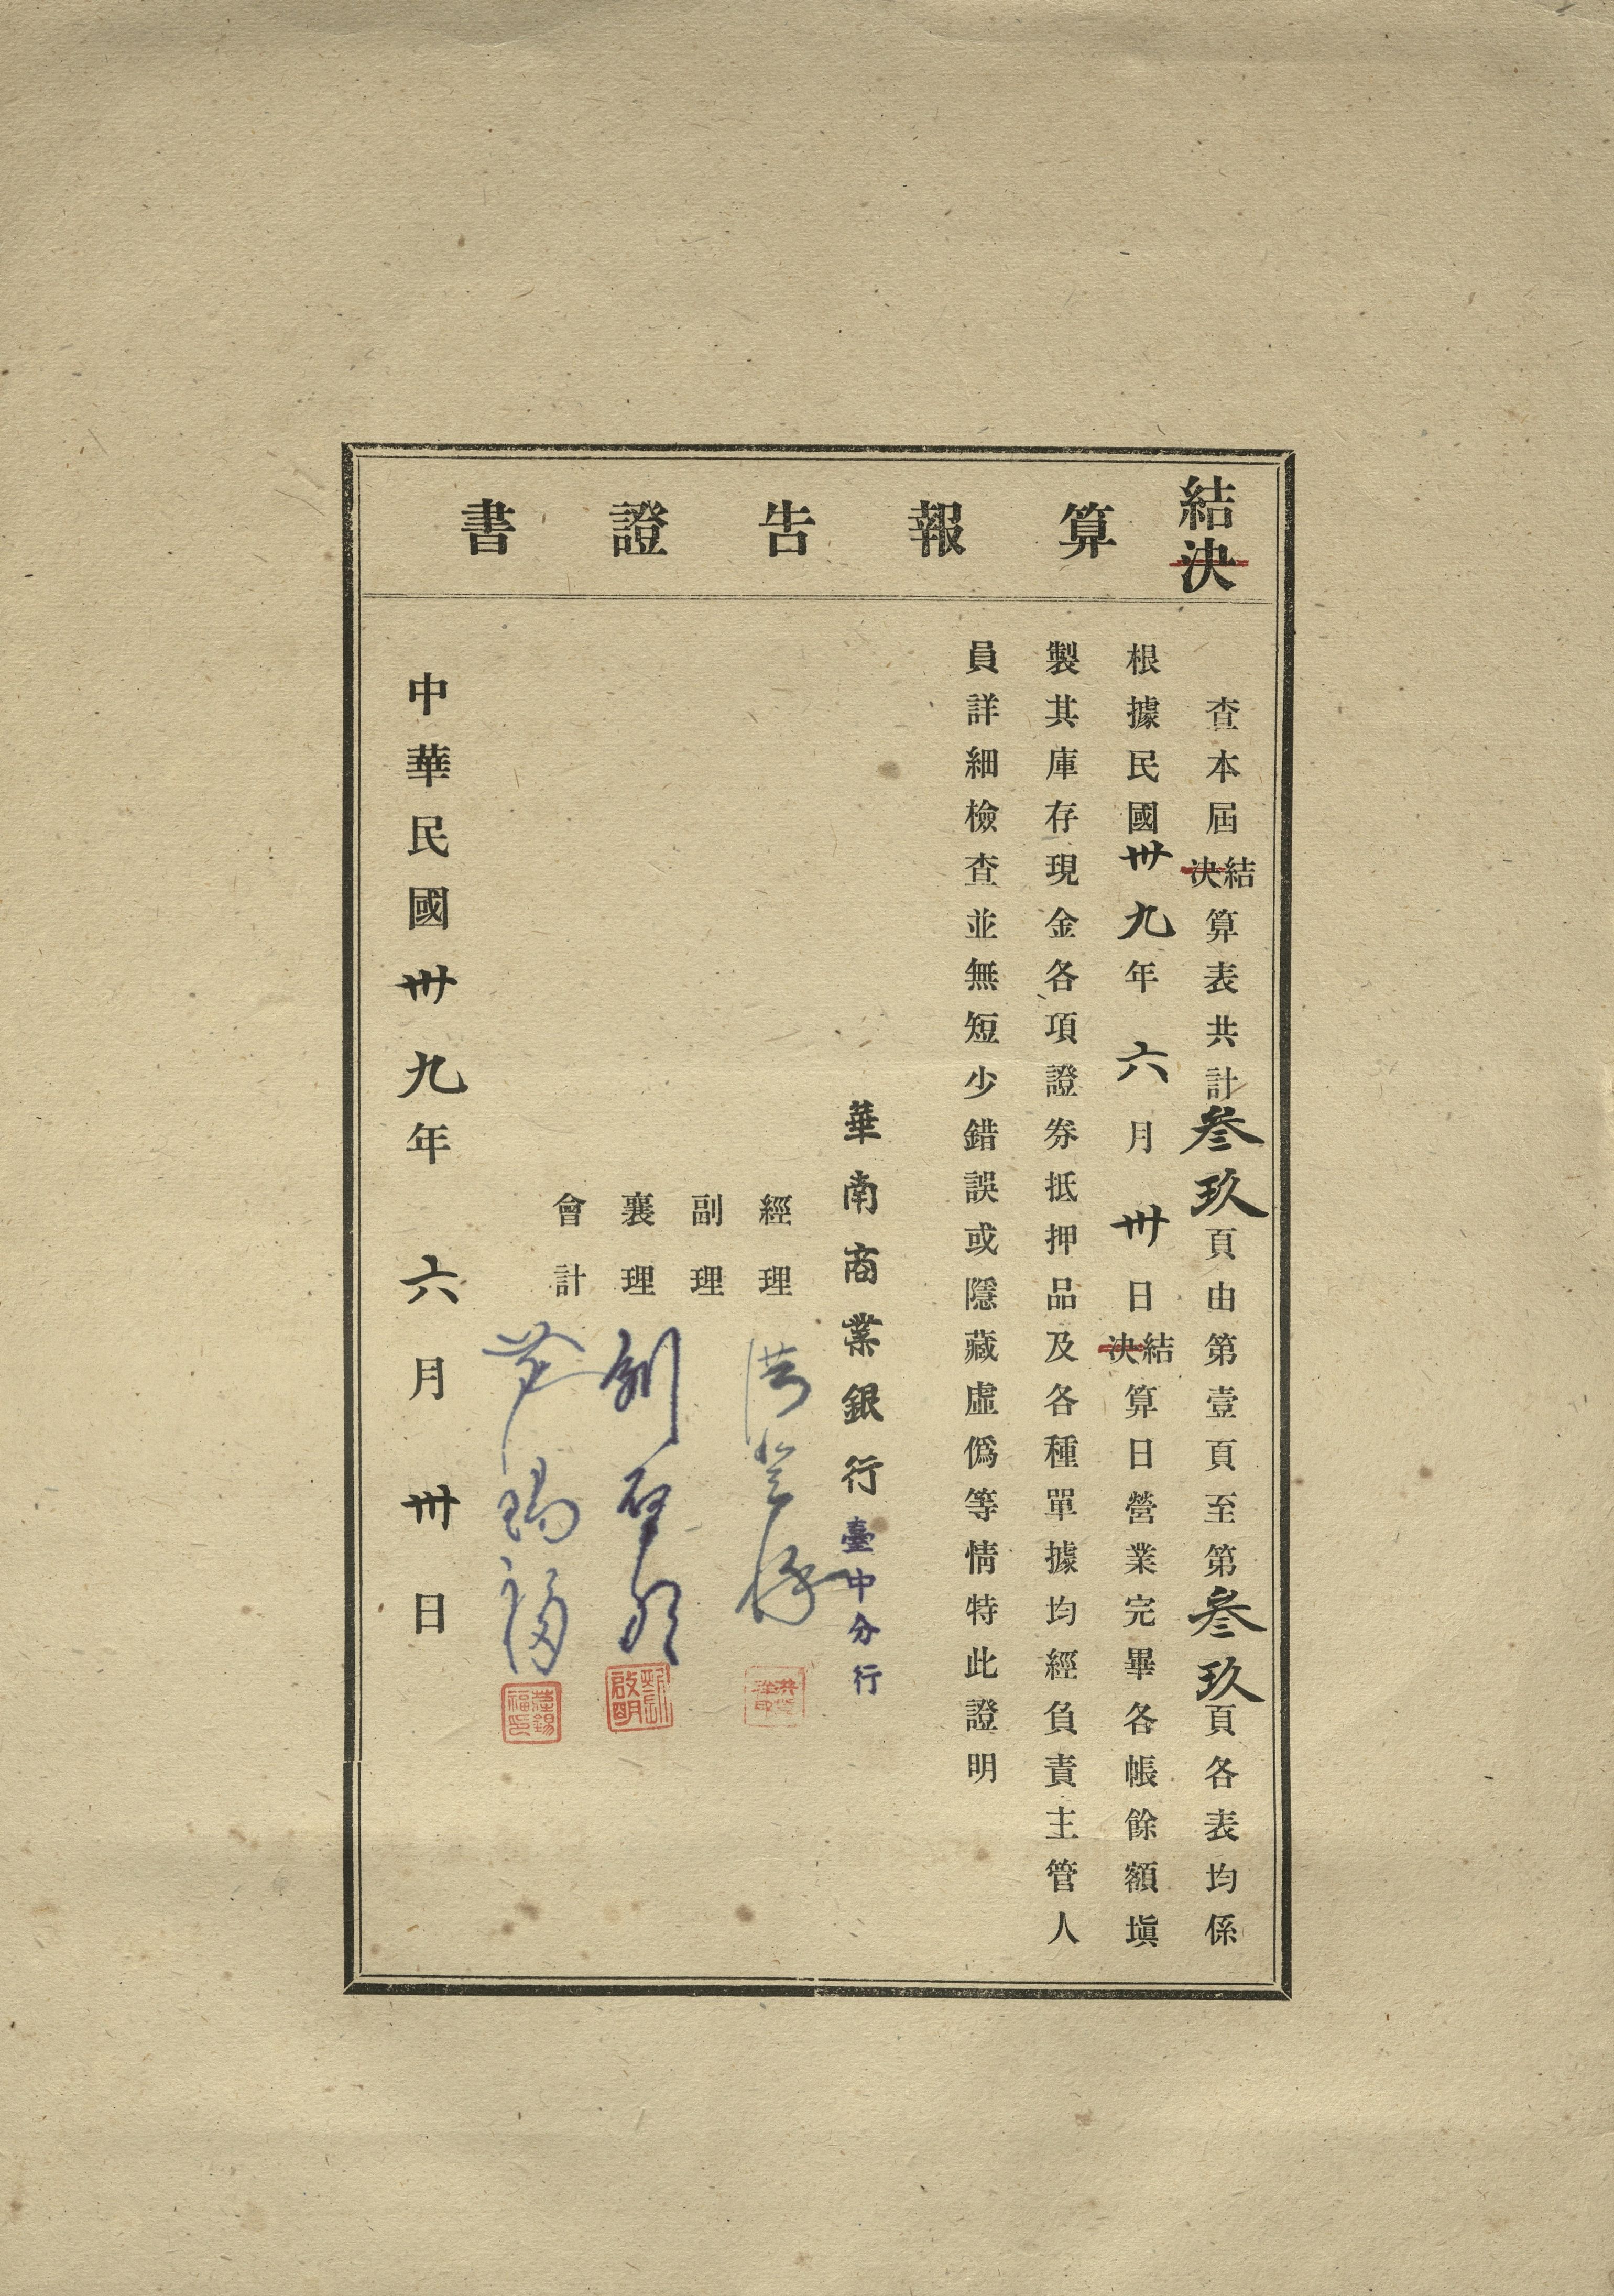 結決算報告證書
查本屆結決算表共計叁玖頁由第壹頁至第叁玖頁各表均係
根據民國卅九年六月卅日結決算日營業完畢各帳餘額塡
製其庫存現金各項證券抵押品及各種單據均經負責主管人
員詳細檢查並無短少錯誤或隱藏虛僞等情特此證明
華南商業銀行臺中分行
經理
副理
襄理 劉啓明
劉啟明
會計 莊錫福
莊錫福印
中華民國卅九年六月卅日